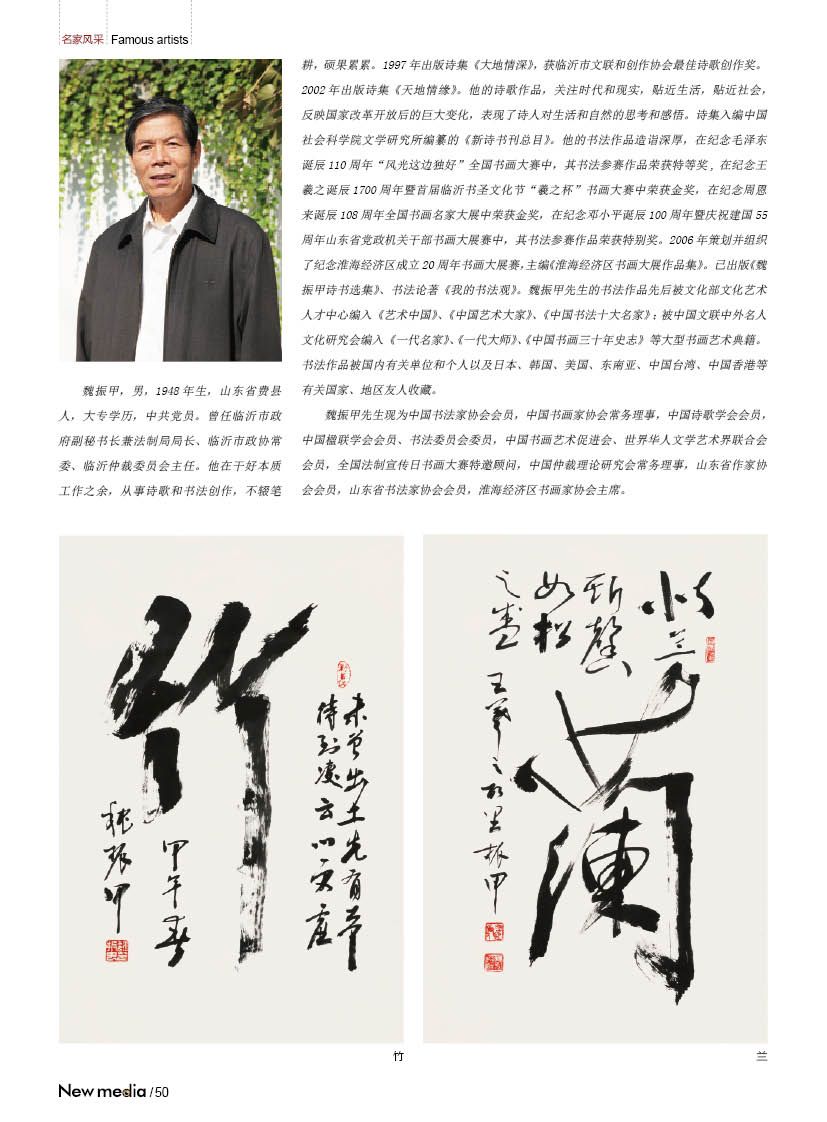 名家风采 Famous artists
魏振甲，男，1948 年生，山东省费县
人，大专学历，中共党员。曾任临沂市政
府副秘书长兼法制局局长、临沂市政协常
委、临沂仲裁委员会主任。他在干好本质
工作之余，从事诗歌和书法创作，不辍笔
耕，硕果累累。1997 年出版诗集《大地情深》，获临沂市文联和创作协会最佳诗歌创作奖。
2002 年出版诗集《天地情缘》。他的诗歌作品，关注时代和现实，贴近生活，贴近社会，
反映国家改革开放后的巨大变化，表现了诗人对生活和自然的思考和感悟。诗集入编中国
社会科学院文学研究所编纂的《新诗书刊总目》。他的书法作品造诣深厚，在纪念毛泽东
诞辰 110 周年“风光这边独好”全国书画大赛中，其书法参赛作品荣获特等奖，在纪念王
羲之诞辰 1700 周年暨首届临沂书圣文化节“羲之杯”书画大赛中荣获金奖，在纪念周恩
来诞辰 108 周年全国书画名家大展中荣获金奖，在纪念邓小平诞辰 100 周年暨庆祝建国 55
周年山东省党政机关干部书画大展赛中，其书法参赛作品荣获特别奖。2006 年策划并组织
了纪念淮海经济区成立 20 周年书画大展赛，主编《淮海经济区书画大展作品集》。已出版《魏
振甲诗书选集》、书法论著《我的书法观》。魏振甲先生的书法作品先后被文化部文化艺术
人才中心编入《艺术中国》、《中国艺术大家》、《中国书法十大名家》；被中国文联中外名人
文化研究会编入《一代名家》、《一代大师》、《中国书画三十年史志》等大型书画艺术典籍。
书法作品被国内有关单位和个人以及日本、韩国、美国、东南亚、中国台湾、中国香港等
有关国家、地区友人收藏。
魏振甲先生现为中国书法家协会会员，中国书画家协会常务理事，中国诗歌学会会员，
中国楹联学会会员、书法委员会委员，中国书画艺术促进会、世界华人文学艺术界联合会
会员，全国法制宣传日书画大赛特邀顾问，中国仲裁理论研究会常务理事，山东省作家协
会会员，山东省书法家协会会员，淮海经济区书画家协会主席。
竹
未曾出土先有节
待到凌云心更虚
甲午春
魏振甲
蘭
如松
之盛
王羲之故里振甲
竹
兰
New media /50